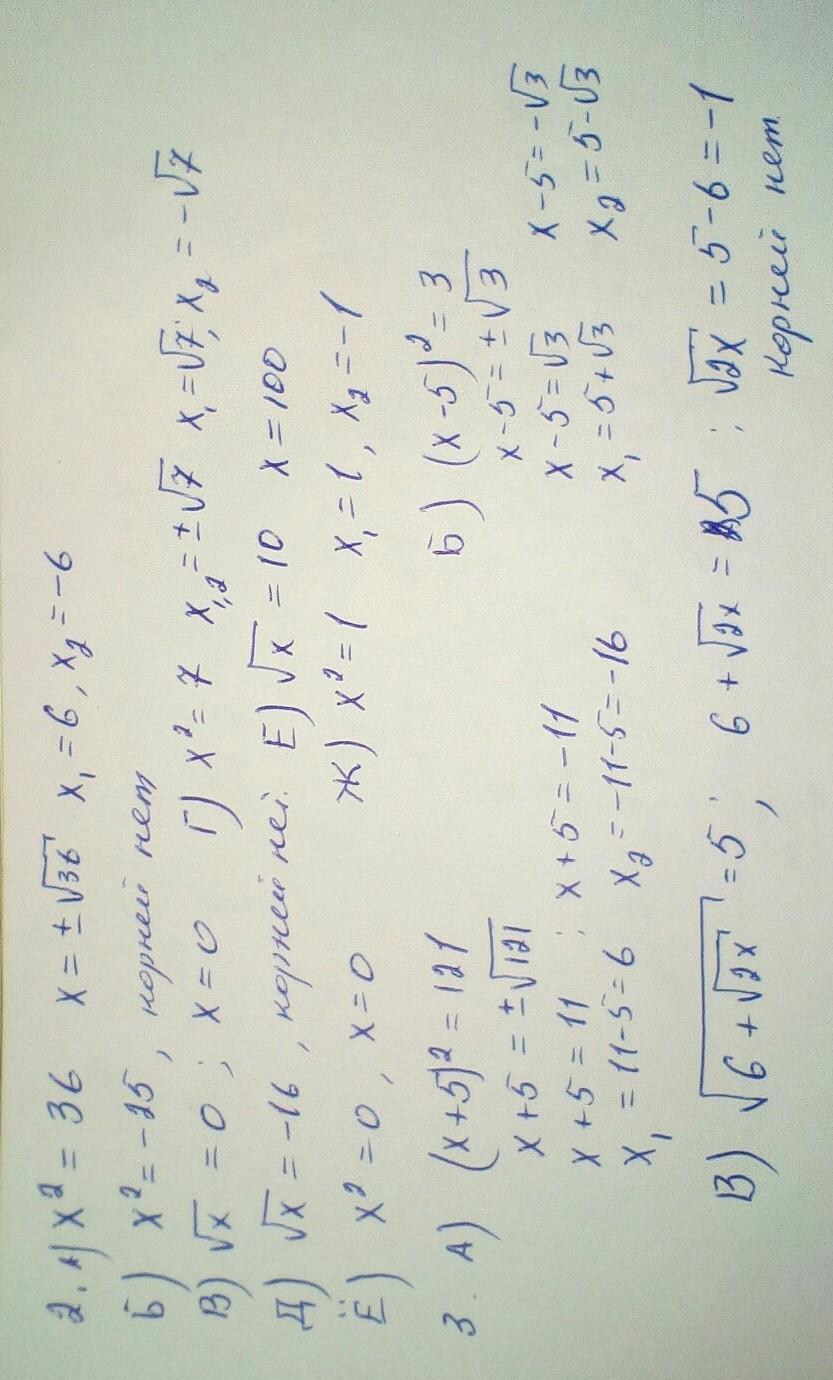 2. А) x² = 36 x = ±√36 x₁ = 6, x₂ = -6
Б) x² = -25, корней нет
В) √x = 0; x = 0 Г) x² = 7 x₁,₂ = ±√7 x₁ = √7; x₂ = -√7
Д) √x = -16, корней нет. Е) √x = 10 x = 100
Ё) x² = 0, x = 0 Ж) x² = 1 x₁ = 1, x₂ = -1
3. А) (x+5)² = 121 Б) (x-5)² = 3
x+5 = ±√121 x-5 = ±√3
x+5 = 11 ; x+5 = -11 x-5 = √3 x-5 = -√3
x₁ = 11-5 = 6 x₂ = -11-5 = -16 x₁ = 5+√3 x₂ = 5-√3
В) √(6+√2x) = 5; 6+√2x = 5 ; √2x = 5-6 = -1
корней нет